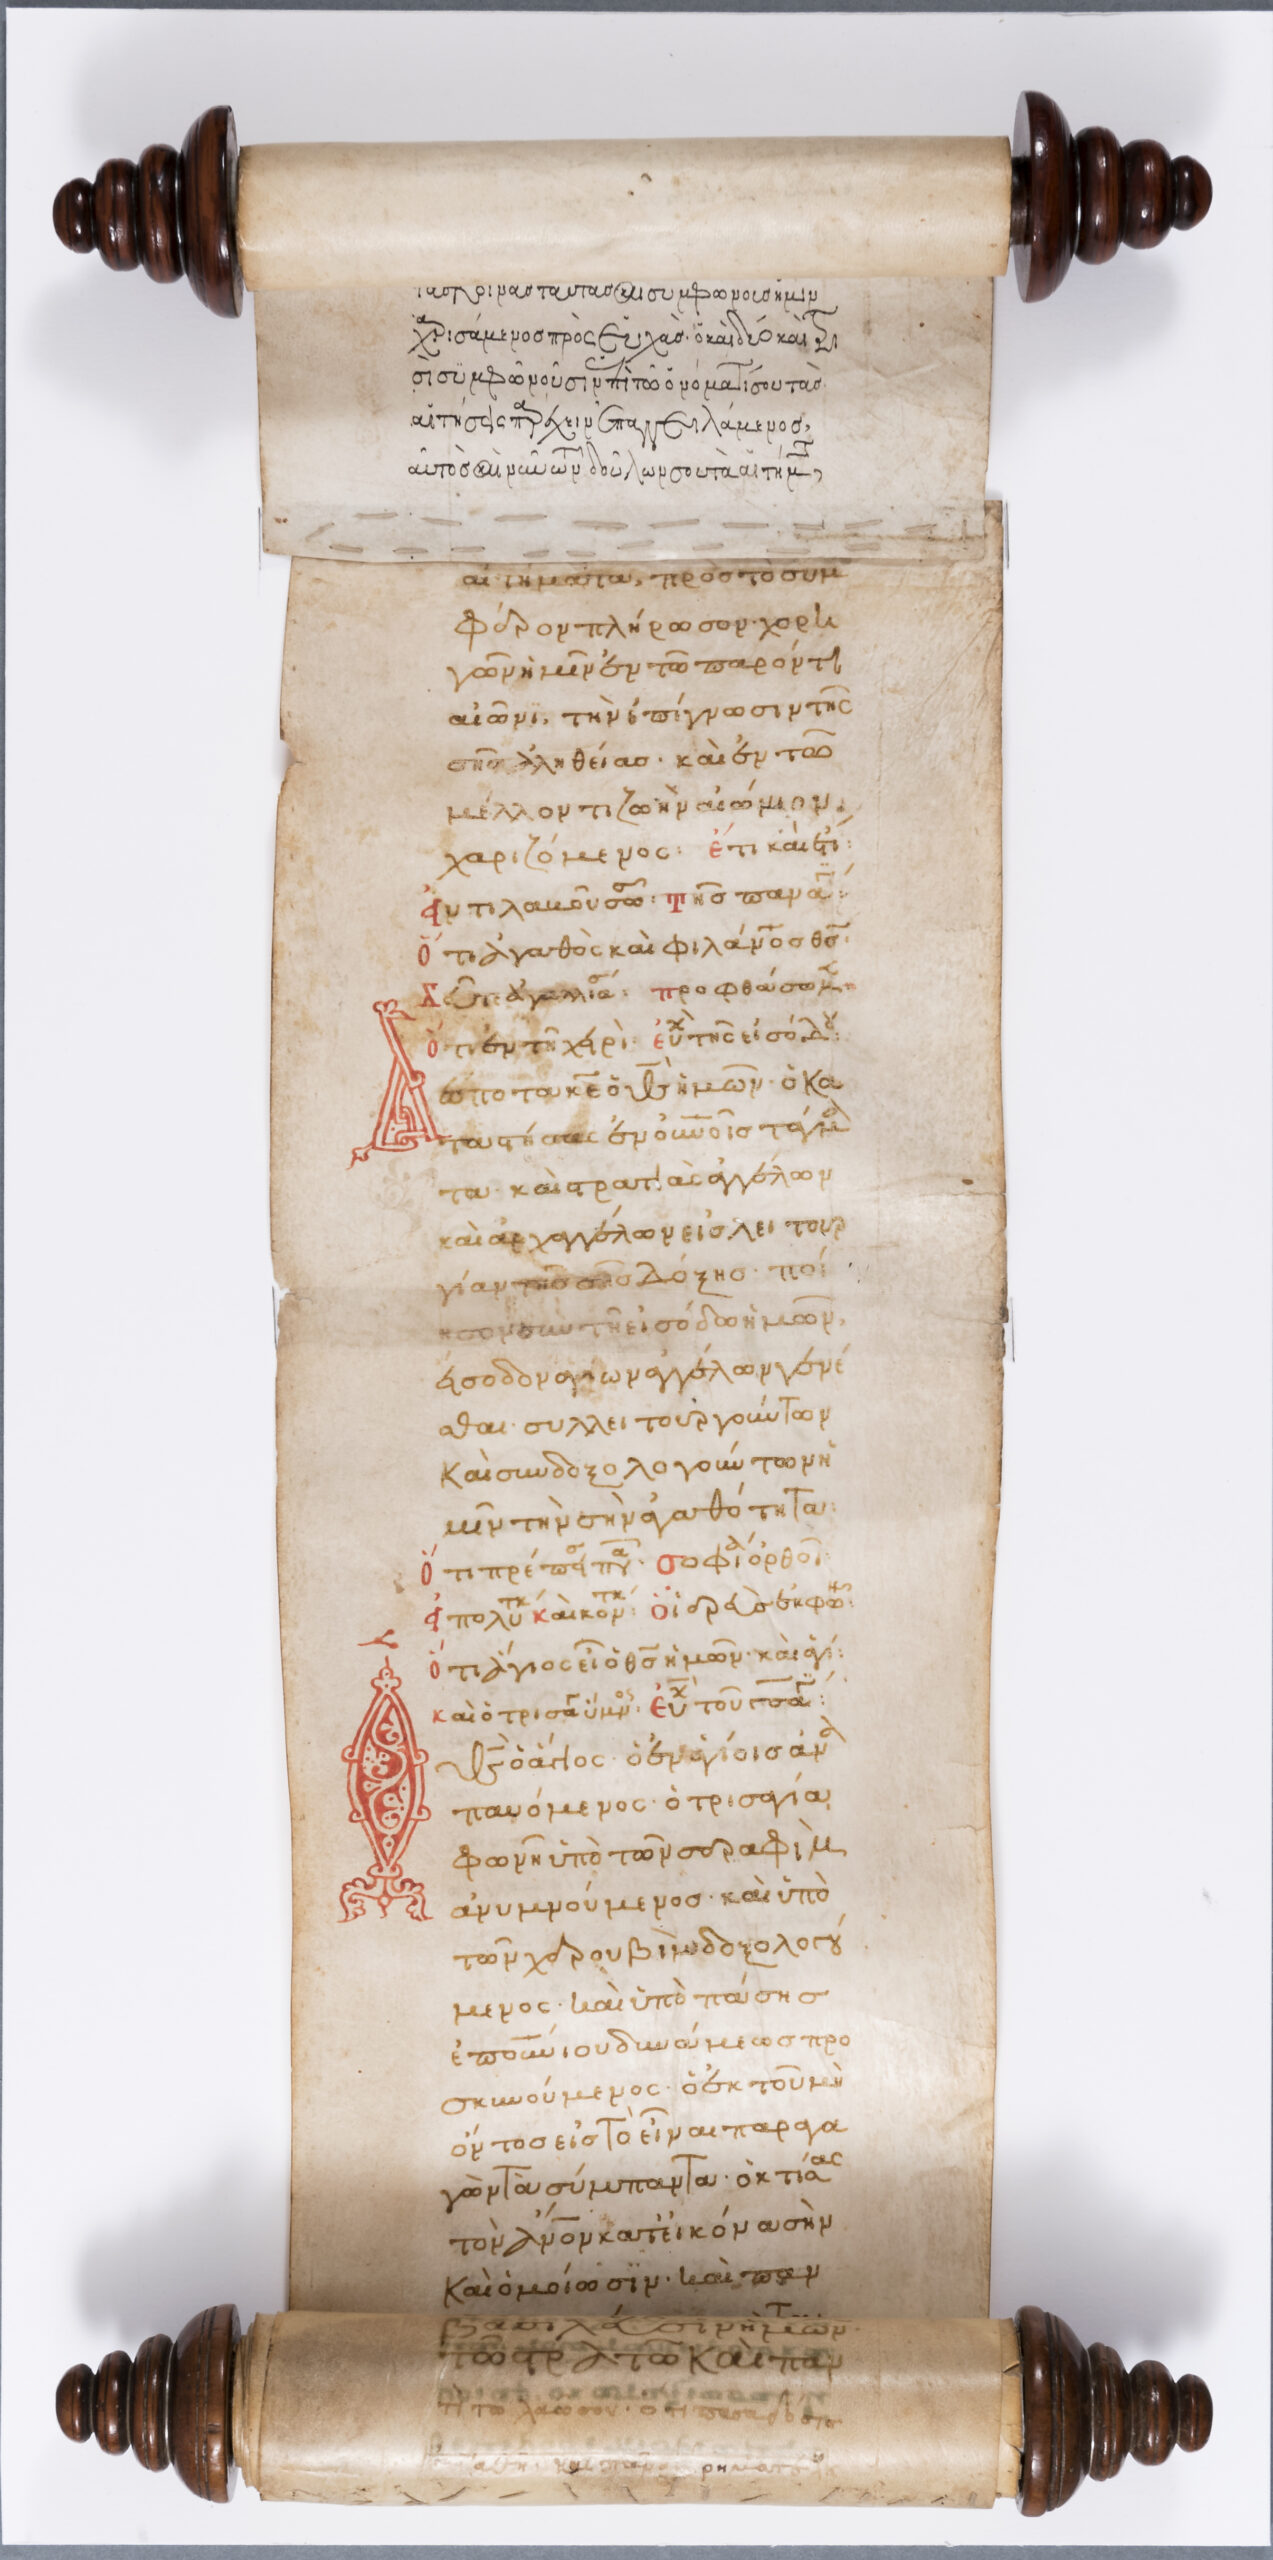 τὰς κοινὰς ταύτας καὶ συμφώνους ἡμῖν
χαρισάμενος προσευχὰς· ὁ καὶ δύο καὶ τρι
σὶ συμφωνοῦσιν ἐπὶ τῶ ὀνόματί σου τὰς
αἰτήσεις παρέχειν ἐπαγγειλάμενος,
αὐτὸς καὶ νῦν τῶν δούλων σου τὰ αἰτήματα,
αἰτήματα, πρὸς τὸ συμ
φέρον πλήρωσον· χορη
γῶν ἡμῖν ἐν τῶ παρόντι
αἰῶνι, τὴν ἐπίγνωσιν τῆς
σῆς ἀληθείας· καὶ ἐν τῶ
μέλλοντι ζωὴν αἰώνιον,
χαριζόμενος: ἔτι καὶ ἔτι:
ἀντιλαβοῦ σῶ: τῆς παναγί:
ὅτι ἀγαθὸς καὶ φιλάνος θς:
Δεῦτε ἀγαλλιασ: προφθάσωμ
ὅτι ἐν τῆ χάρι: εὐχ τῆς εἰσόδου:
Δέσποτα κε ὁ θς ἡμῶν· ὁ κα
ταστήσας ἐν οὐνοῖς τάγμα
τα· καὶ στρατιὰς ἀγγέλων
καὶ ἀρχαγγέλων εἰς λειτουρ
γίαν τῆς σῆς δόξης· ποί
ησον σὺν τῆ εἰσόδω ἡμῶν,
εἴσοδον ἁγίων ἀγγέλων γενέ
σθαι· συλλειτουργούντων
καὶ συνδοξολογούντων ἡ
μῖν τὴν σὴν ἀγαθότητα:
ὅτι πρέπει σοι πᾶ: σοφία ὀρθοί:
ἀπολυτικ καὶ κοντκ: ὁ ἱερεὺς ἐκφω:
ὅτι ἅγιος εἶ ὁ θς ἡμῶν· καὶ ἀεί:
καὶ ὁ τρισαγ ὕμνος: εὐχ τοῦ τρισαγί:
ὁ θς ὁ ἅγιος· ὁ ἐν ἁγίοις ἀνα
παυόμενος· ὁ τρισαγία
φωνῆ ὑπὸ τῶν σεραφὶμ
ἀνυμνούμενος· καὶ ὑπὸ
τῶν χερουβὶμ δοξολογού
μενος· καὶ ὑπὸ πάσης
ἐπουνίου δυνάμεως προ
σκυνούμενος· ὁ ἐκ τοῦ μὴ
ὄντος εἰς τὸ εἶναι παραγα
γὼν τὰ σύμπαντα· ὁ κτίσας
τὸν ἄνον κατ' εἰκόνα σὴν
καὶ ὁμοίωσιν· καὶ παν
βασιλέ ἡμῶν
τῶ στρατῶ καὶ παν
τὶ τῶ λαῶ σου· ὅτι πᾶσα δόσις